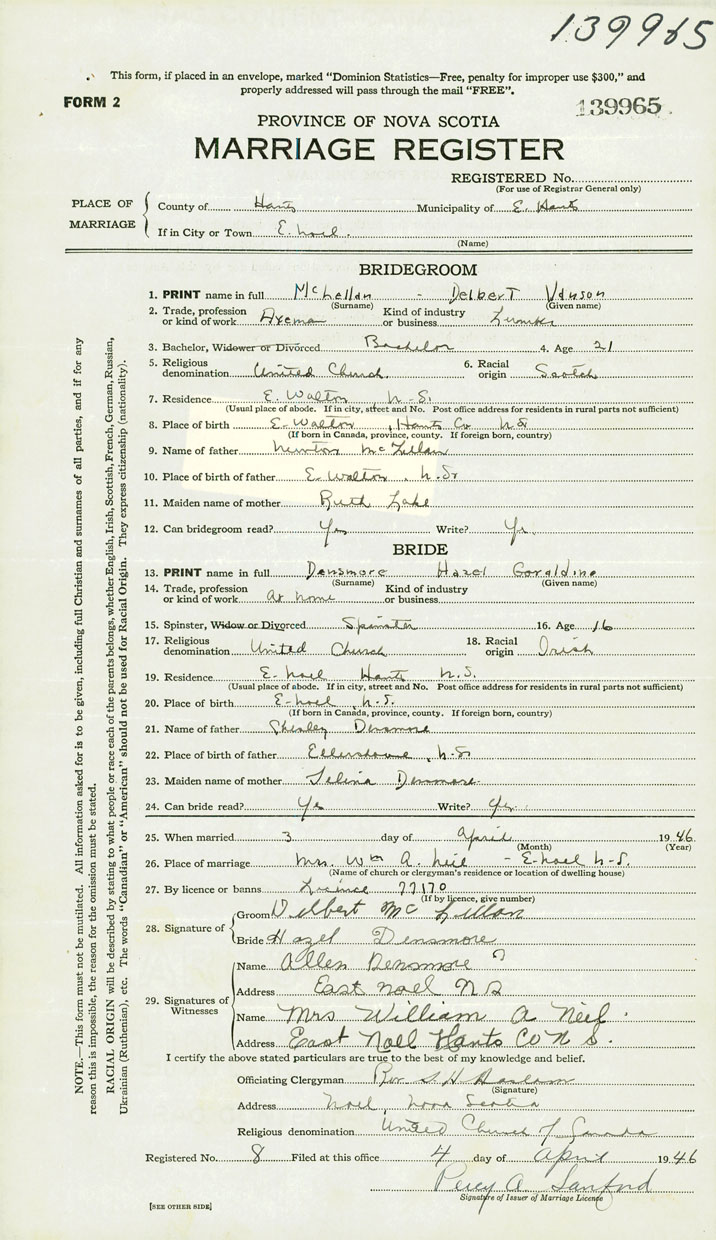 139965
This form, if placed in an envelope, marked "Dominion Statistics—Free, penalty for improper use $300," and
properly addressed will pass through the mail "FREE".
FORM 2
139965
PROVINCE OF NOVA SCOTIA
MARRIAGE REGISTER
REGISTERED No.
(For use of Registrar General only)
PLACE OF MARRIAGE
County of Hants Municipality of E. Hants
If in City or Town E. Noel.
(Name)
BRIDEGROOM
1. PRINT name in full McLellan - Delbert Vanson
(Surname) (Given name)
2. Trade, profession or kind of work Axeman Kind of industry or business Lumber
3. Bachelor, Widower or Divorced Bachelor 4. Age 21
5. Religious denomination United Church 6. Racial origin Scotch
7. Residence E. Walton N.S.
(Usual place of abode. If in city, street and No. Post office address for residents in rural parts not sufficient)
8. Place of birth E. Walton, Hants Co N.S
(If born in Canada, province, county. If foreign born, country)
9. Name of father Newton McLellan
10. Place of birth of father E. Walton, N.S.
11. Maiden name of mother Ruth Lake
12. Can bridegroom read? Yes Write? Yes
BRIDE
13. PRINT name in full Densmore Hazel Geraldine
(Surname) (Given name)
14. Trade, profession or kind of work At home Kind of industry or business
15. Spinster, Widow or Divorced Spinster 16. Age 16
17. Religious denomination United Church 18. Racial origin Irish
19. Residence E. Noel Hants N.S.
(Usual place of abode. If in city, street and No. Post office address for residents in rural parts not sufficient)
20. Place of birth E. Noel, N.S.
(If born in Canada, province, county. If foreign born, country)
21. Name of father Densmore
22. Place of birth of father Ellershouse, N.S
23. Maiden name of mother Selina Densmore
24. Can bride read? Yes Write? Yes
25. When married 3 day of April 1946
(Month) (Year)
26. Place of marriage Mrs. Wm A. Neil - E. Noel N.S.
(Name of church or clergyman's residence or location of dwelling house)
27. By licence or banns Licence 77170
(If by licence, give number)
28. Signature of
Groom Delbert McLellan
Bride Hazel Densmore
29. Signatures of Witnesses
Name Allen Densmore
Address East Noel N S
Name Mrs William A Neil
Address East Noel Hants Co N S.
I certify the above stated particulars are true to the best of my knowledge and belief.
Officiating Clergyman Rev S. H. Haslam
(Signature)
Address Noel, Nova Scotia
Religious denomination United Church of Canada
Registered No. 8 Filed at this office 4 day of April 1946
Percy A. Sanford
Signature of Issuer of Marriage Licence
[SEE OTHER SIDE]
NOTE.—This form must not be mutilated. All information asked for is to be given, including full Christian and surnames of all parties, and if for any
reason this is impossible, the reason for the omission must be stated.
RACIAL ORIGIN will be described by stating to what people or race each of the parents belongs, whether English, Irish, Scottish, French, German, Russian,
Ukrainian (Ruthenian), etc. The words "Canadian" or "American" should not be used for Racial Origin. They express citizenship (nationality).